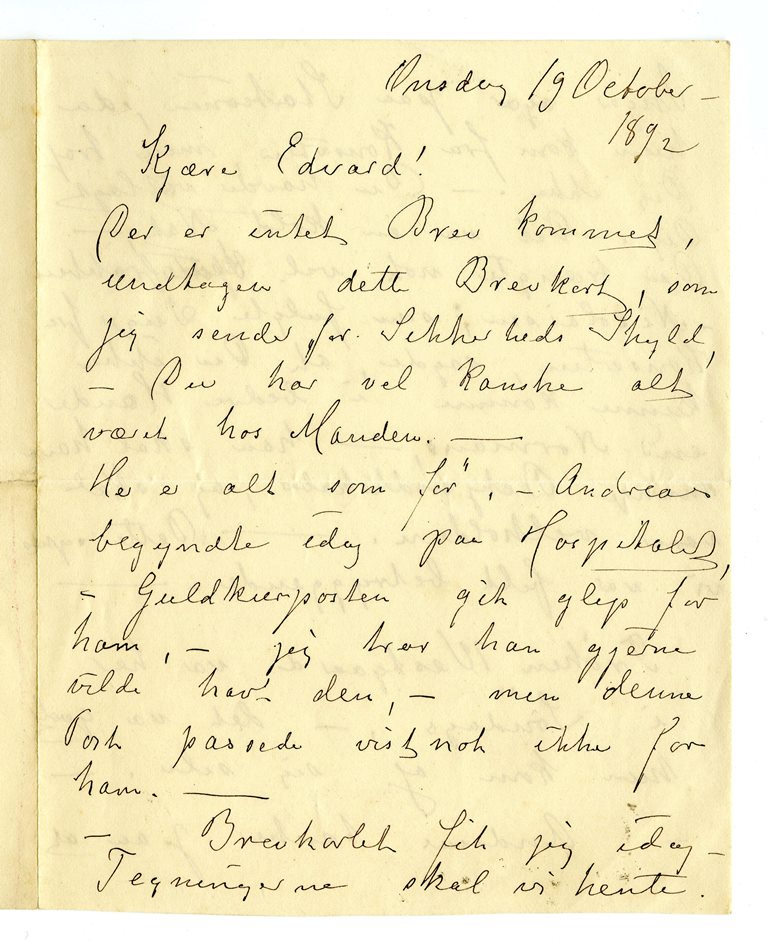 Onsdag 19 October –
1892
Kjære Edvard!
Der er intet Brev kommet,
undtagen dette Brevkort, som
jeg sender for Sikkerheds Skyld,
– Du har vel kanske alt
været hos Manden. —
He e alt som før", – Andreas
begyndte idag paa Hospitalet,
– Guldkurposten gik glip for
ham, – jeg tror han gjerne
vilde hav' den, – men denne
Post passede vistnok ikke for
ham. —
– Brevkortet fik jeg idag –
Tegningerne skal vi hente.